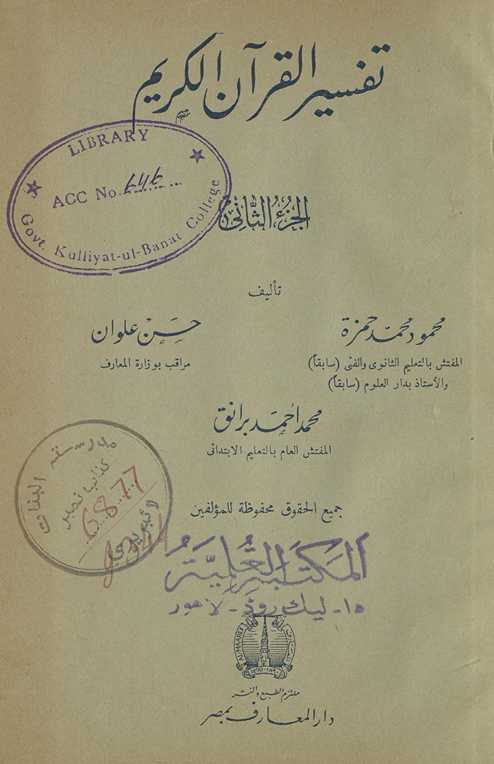 تفسير القرآن الكريم
LIBRARY
ACC No.
Govt. Kulliyat-ul-Banat College
الجزء الثاني
تأليف
محمود محمد حمزة
حسن علوان
المفتش بالتعليم الثانوى والفنى (سابقاً)
مراقب بوزارة المعارف
والأستاذ بدار العلوم (سابقاً)
محمد أحمد برانق
المفتش العام بالتعليم الابتدائى
مدرسة البنات
6877
جميع الحقوق محفوظة للمؤلفين
المكتبة العلمية
١٥- ليك روڈ - لاهور
ملتزم الطبع والنشر
دار المعارف بمصر